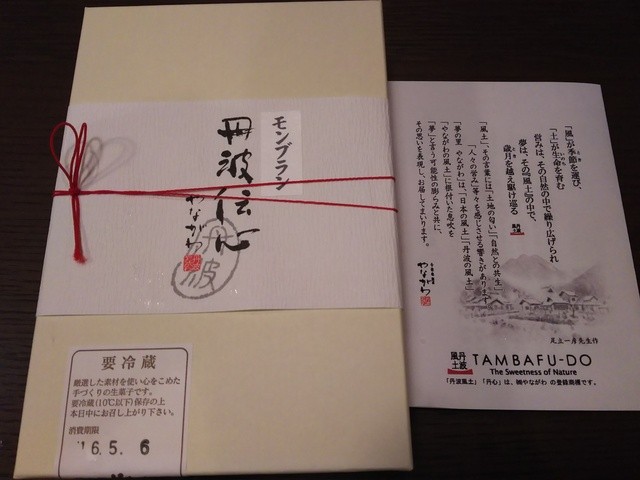 モンブラン
丹波伝心
やながわ
丹波
要冷蔵
厳選した素材を使い心をこめた
手づくりの生菓子です。
要冷蔵(10℃以下)保存の上
本日中にお召し上がり下さい。
消費期限
'16.5. 6
「風」が季節を運び、
「土」が生命を育む
営みは、その自然の中で繰り広げられ
夢は、その『風土』の中で、
歳月を越え駆け巡る
「風土」、その言葉には「土地の匂い」「自然との共生」
「人々の営み」等々を感じさせる響きがあります。
「夢の里 やながわ」は、「日本の風土」「丹波の風土」
「やながわの風土」に根付いた息吹を
「夢」と言う可能性の膨らみと共に、
その思いを表現し、お届けしてまいります。
やながわ
足立一身先生作
丹波
風土
TAMBAFU-DO
The Sweetness of Nature
「丹波風土」「丹心」は、㈱やながわ の登録商標です。